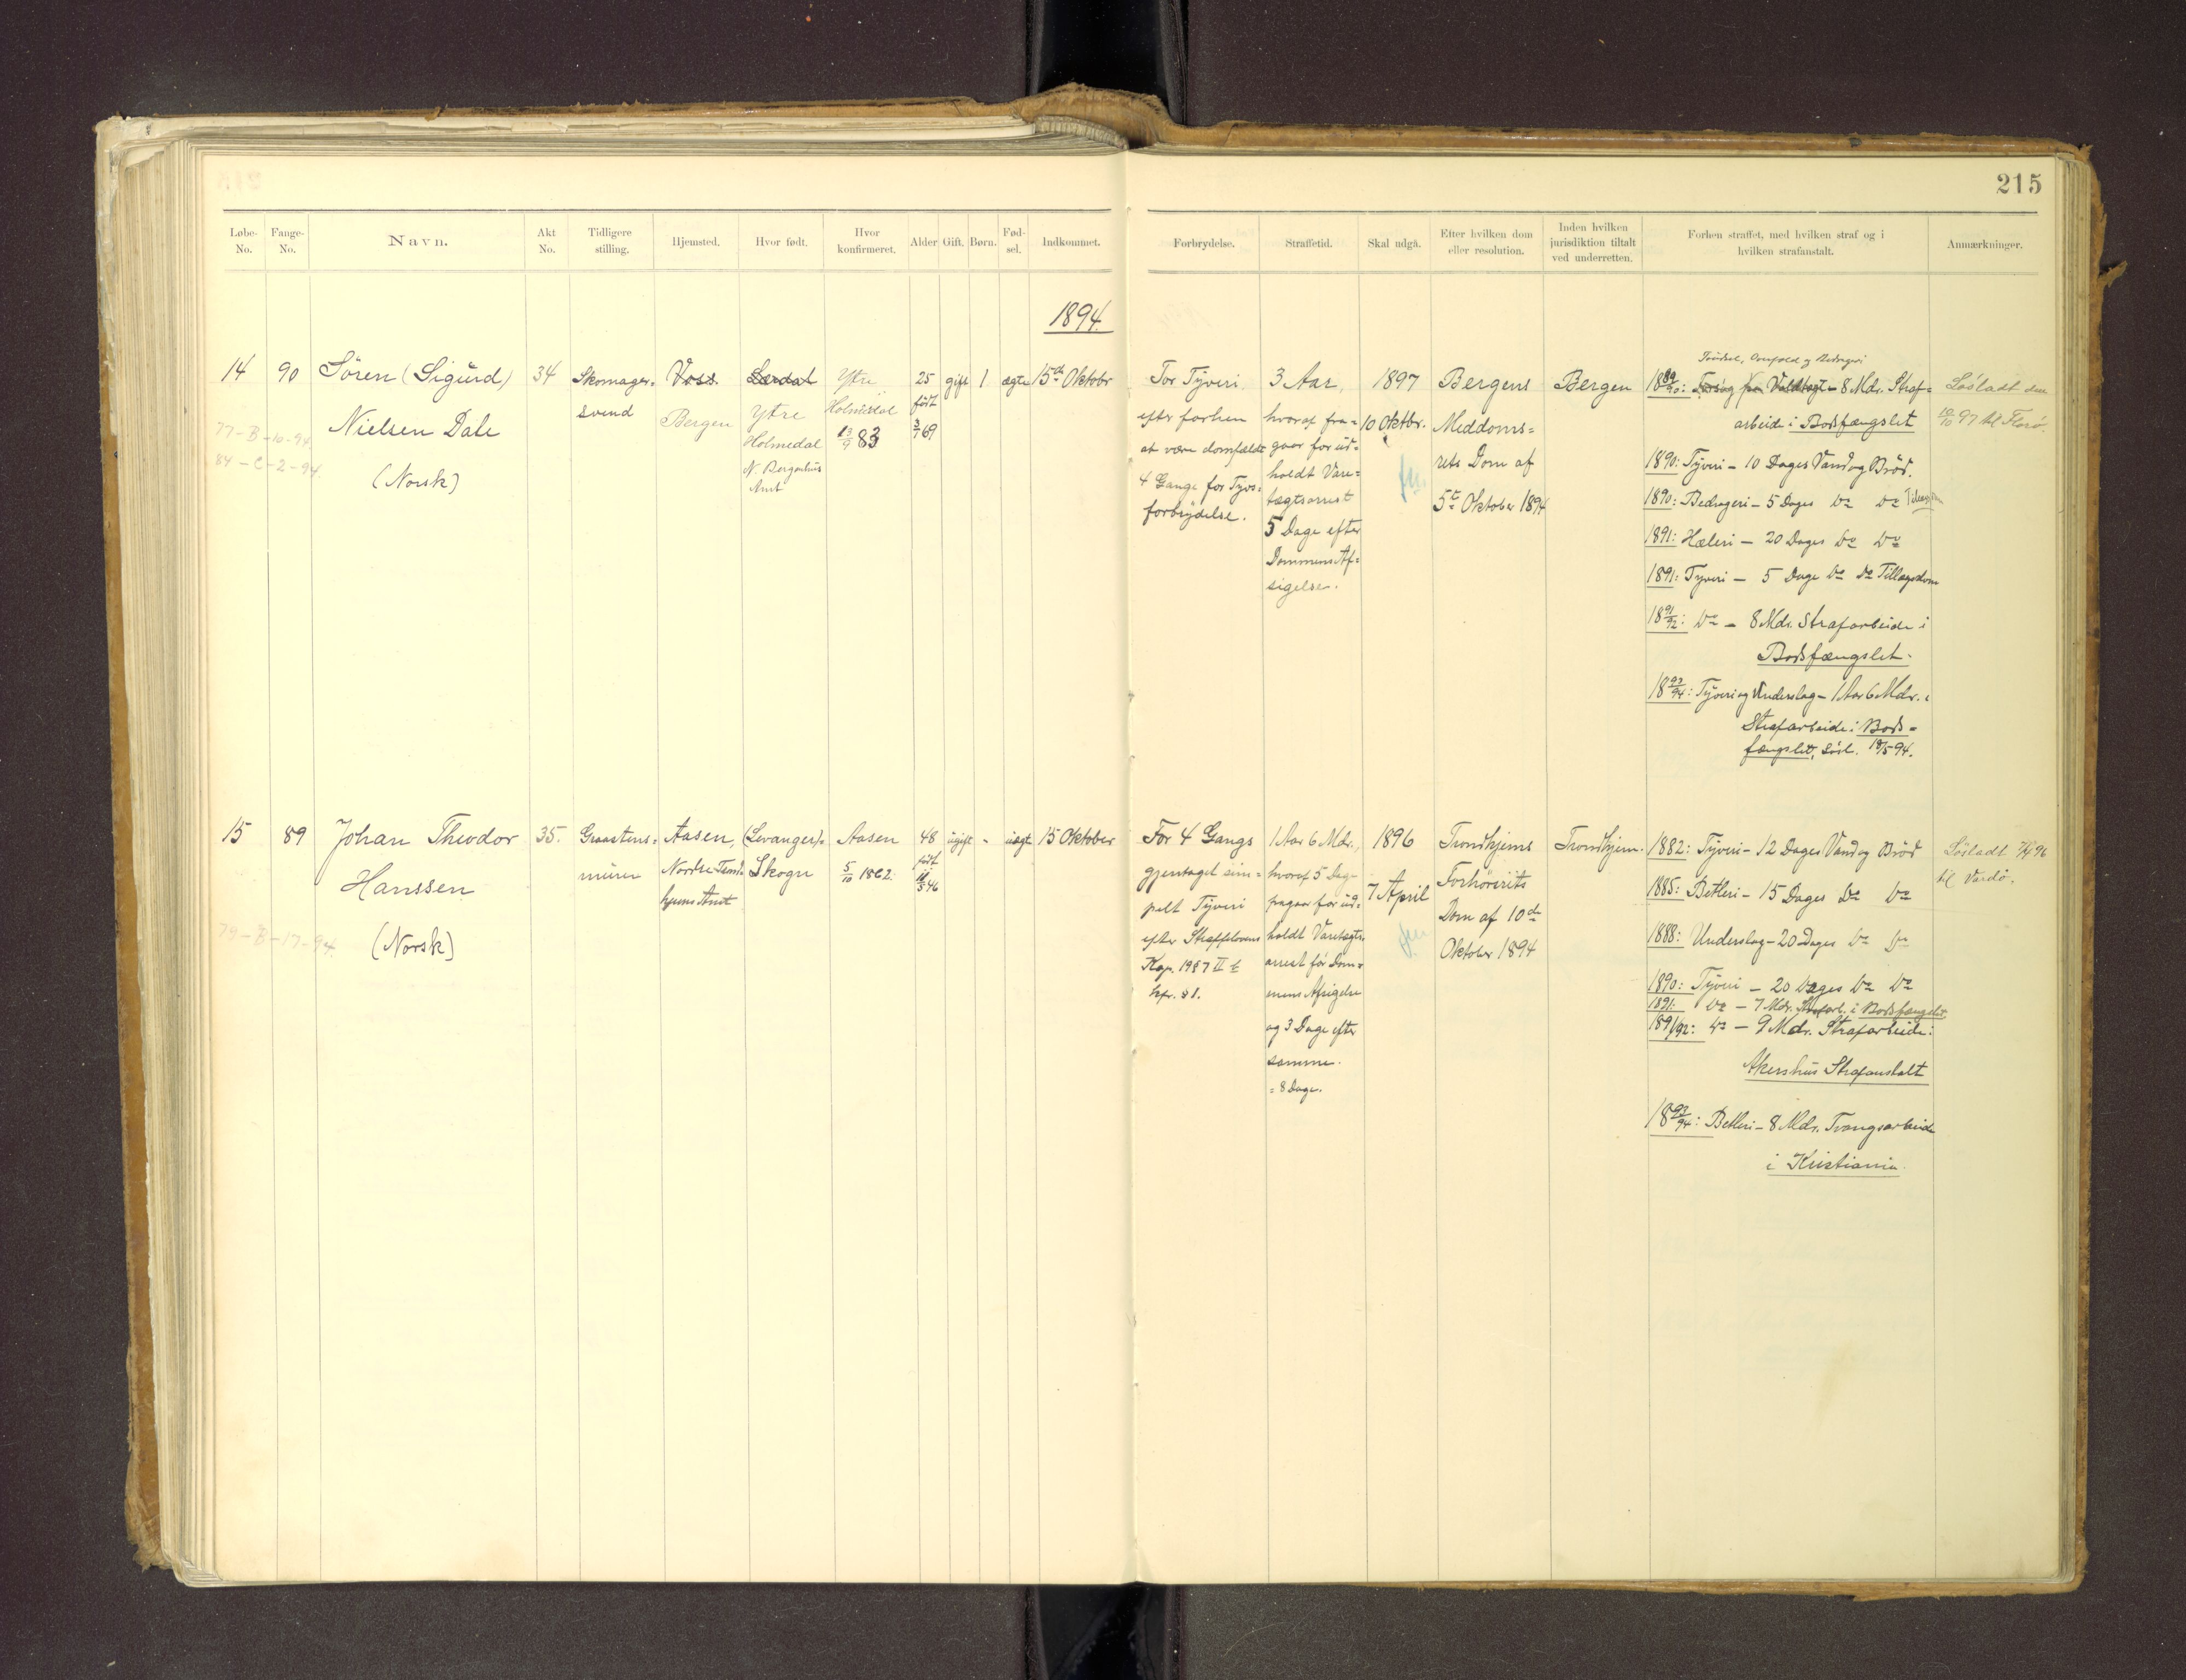 215
Løbe-No.
Fange-No.
Navn.
Akt No.
Tidligere stilling.
Hjemsted.
Hvor født.
Hvor konfirmeret.
Alder
Gift.
Børn.
Fød-sel.
Indkommet.
Forbrydelse.
Straffetid.
Skal udgå.
Efter hvilken dom eller resolution.
Inden hvilken jurisdiktion tiltalt ved underretten.
Forhen straffet, med hvilken straf og i hvilken strafanstalt.
Anmærkninger.
1894
14
90
Sören (Sigurd)
Nielsen Dale
(Norsk)
77-B-10-94.
84-C-2-94
34
Skomager=
svend
Voss.
Bergen
Lærdal
Ytre
Holmedal
N. Bergenhus
Amt
Ytre
Holmedal
13/9 83
25
født
3/7 69
gift
1
ægte
15de Oktobr
For Tyveri,
efter forhen
at være domfældt
4 Gange for Tyvs=
forbrydelse.
3 Aar,
hvoraf fra=
gaar for ud=
holdt Vare=
tægtsarrest
5 Dage efter
Dommens Af=
sigelse.
1897
10 Oktbr.
Bergens
Meddoms=
rets Dom af
5te Oktober 1894
Bergen
Trudsel, Overfald og Bedrageri
1889/90: Forsøg paa Voldtægt - 8 Mdr. Straf=
arbeide i Bodsfængslet
1890: Tyveri - 10 Dages Vand og Brød.
1890: Bedrageri - 5 Dages Do Do
1891: Hæleri - 20 Dages Do Do
1891: Tyveri - 5 Dage Do Do Tillægsdom
1891/92: Do - 8 Mdr. Strafarbeide i
Bodsfængslet.
1893/94: Tyveri og Underslag - 1 Aar 6 Mdr.
Strafarbeide i Bods=
fængslet, Løsl. 18/5 94.
Løsladt den
10/10 97 til Florø.
15
89
Johan Theodor
Hanssen
(Norsk)
79-B-17-94.
35.
Graastens=
murer
Aasen,
Nordre Trond=
hjems Amt
(Levanger)=
Skogn
Aasen
5/10 1862.
48
født
46
ugift
-
uægte
15 Oktober
For 4 Gangs
gjentaget sim=
pelt Tyveri
efter Straffelovens
Kap. 19 § 7 II
kfr. § 1.
1 Aar 6 Mdr.,
hvoraf 5 Dag-
fragaar for ud=
holdt Varetægts=
arrest før Dom=
mens Afsigelse
og 3 Dage efter
samme.
= 8 Dage.
1896
7 April
Trondhjems
Forhørsrets
Dom af 10de
Oktober 1894
Trondhjem.
1882: Tyveri - 12 Dages Vand og Brød
1885: Betleri - 15 Dages Do Do
1888: Underslag - 20 Dages Do Do
1890: Tyveri - 20 Dages Do Do
1891: Do - 7 Mdr. Strafarb. i Bodsfængslet
1891/92: Do - 9 Mdr. Strafarbeide i
Akershus Strafanstalt
1893/94: Betleri - 8 Mdr. Tvangsarbeide
i Kristiania.
Løsladt 7/4 96
til Vardø.